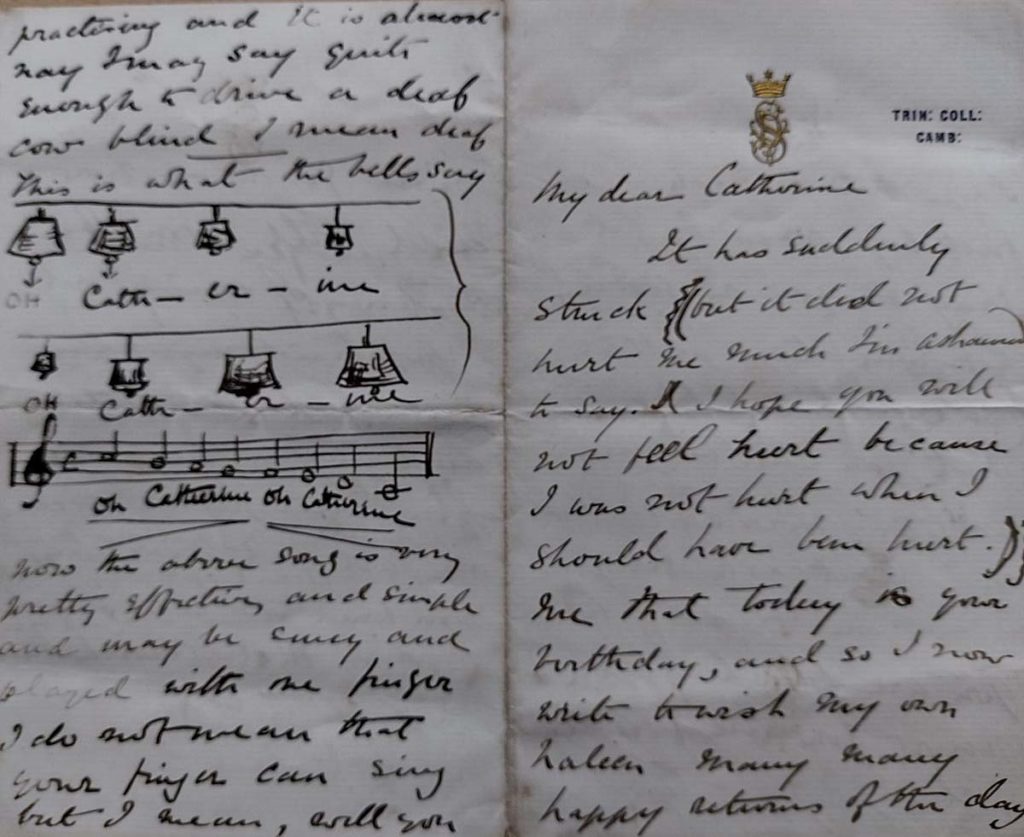 TRIN: COLL:
CAMB:
My dear Catherine
It has suddenly
struck {(but it did not
hurt me much I'm ashamed
to say. I hope you will
not feel hurt because
I was not hurt when I
should have been hurt.)}
me that today is your
birthday, and so I now
write to wish my own
many many
happy returns of the day
practising and it is almost
nay I may say quite
enough to drive a deaf
cow blind I mean deaf
This is what the bells say
OH Cath - er - ine
OH Cath - er - ine
Oh Catherine Oh Catherine
now the above song is very
pretty effective and simple
and may be sung and
played with one finger
I do not mean that
your finger can sing
but I mean, will you